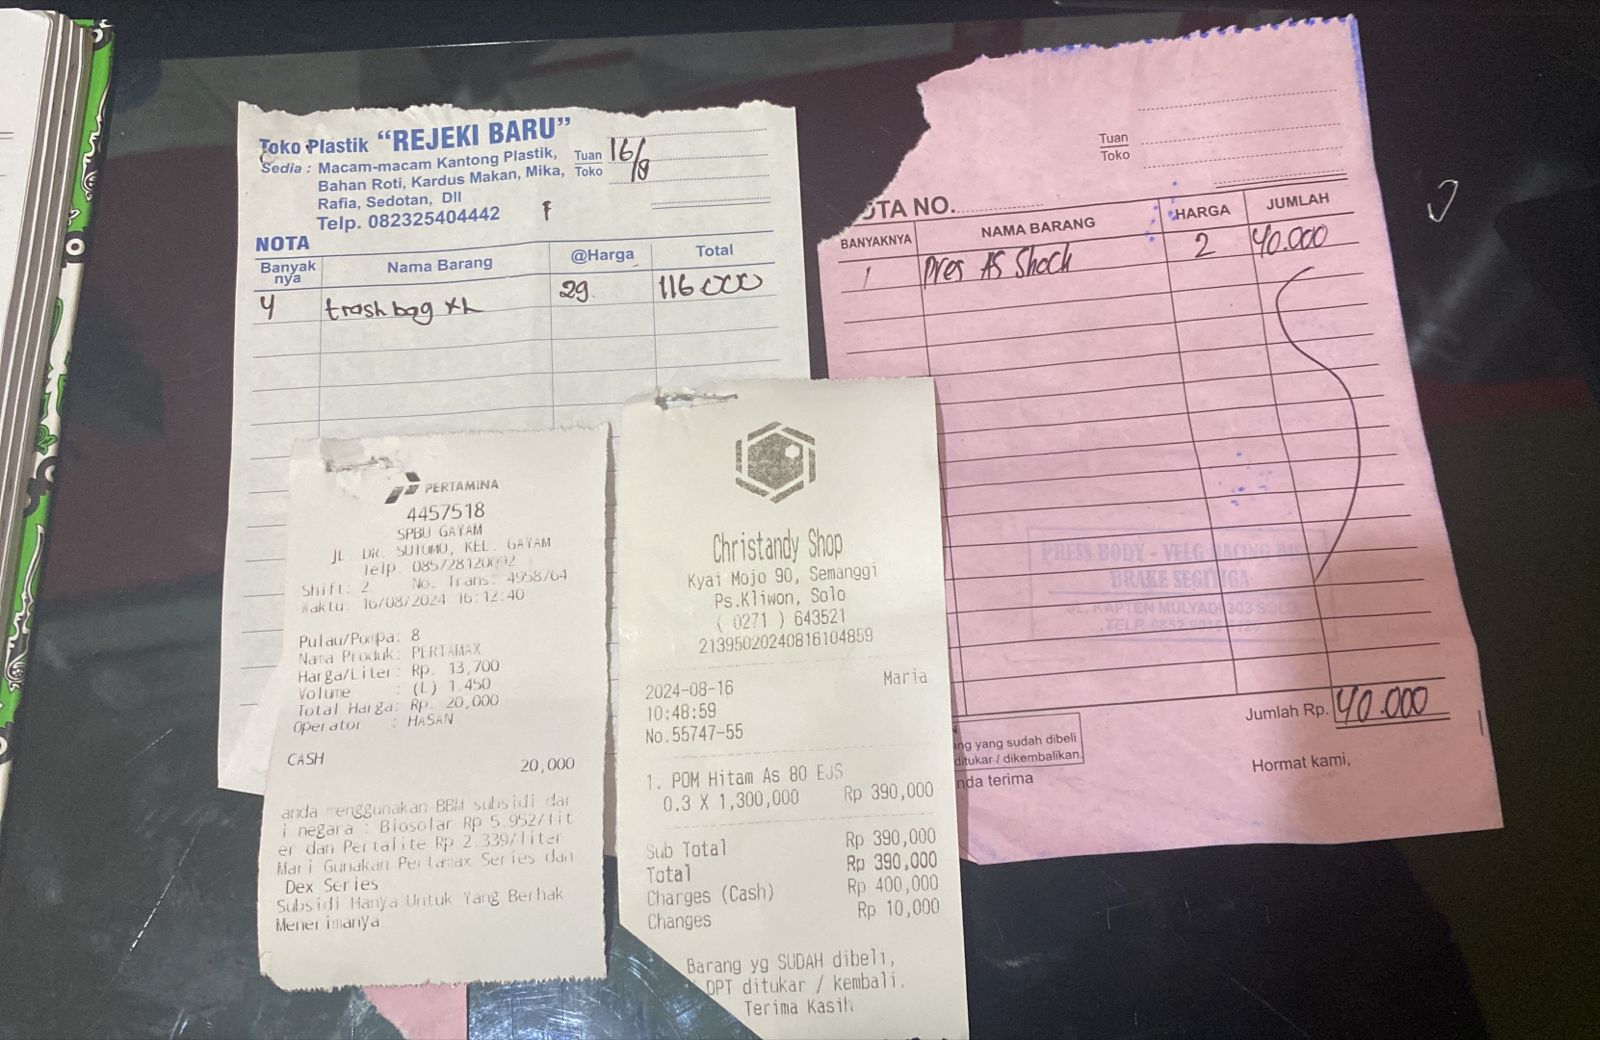 Toko Plastik "REJEKI BARU"
Sedia : Macam-macam Kantong Plastik,
Bahan Roti, Kardus Makan, Mika,
Rafia, Sedotan, Dll
Telp. 082325404442
Tuan
Toko
16/8
NOTA
Banyak nya Nama Barang @Harga Total
4 trash bag XL 29. 116.000
PERTAMINA
4457518
SPBU GAYAM
JL. DR. SUTOMO, KEL. GAYAM
Telp.
Shift: 2 No. Trans: 4958764
Waktu: 16/08/2024 16:12:40
Pulau/Pompa: 8
Nama Produk: PERTAMAX
Harga/Liter: Rp. 13,700
Volume : (L) 1.450
Total Harga: Rp. 20,000
Operator : HASAN
CASH 20,000
anda menggunakan BBM subsidi dar
i negara : Biosolar Rp 5.952/lit
er dan Pertalite Rp 2.339/liter
Mari Gunakan Pertamax Series dan
Dex Series
Subsidi Hanya Untuk Yang Berhak
Menerimanya
Christandy Shop
Kyai Mojo 90, Semanggi
Ps.Kliwon, Solo
( 0271 ) 643521
21395020240816104859
2024-08-16 Maria
10:48:59
No.55747-55
1. POM Hitam As 80 EJS
0.3 X 1,300,000 Rp 390,000
Sub Total Rp 390,000
Total Rp 390,000
Charges (Cash) Rp 400,000
Changes Rp 10,000
Barang yg SUDAH dibeli,
DPT ditukar / kembali.
Terima Kasih
Tuan
Toko
OTA NO.
BANYAKNYA NAMA BARANG HARGA JUMLAH
1 Pres AS Shock 2 40.000
PRESS BODY - VELG RACING
BRAKE SEGITIGA
JL. KAPTEN MULYADI 303 SOLO
TELP. 0852
Jumlah Rp. 40.000
ng yang sudah dibeli
ditukar / dikembalikan.
nda terima
Hormat kami,